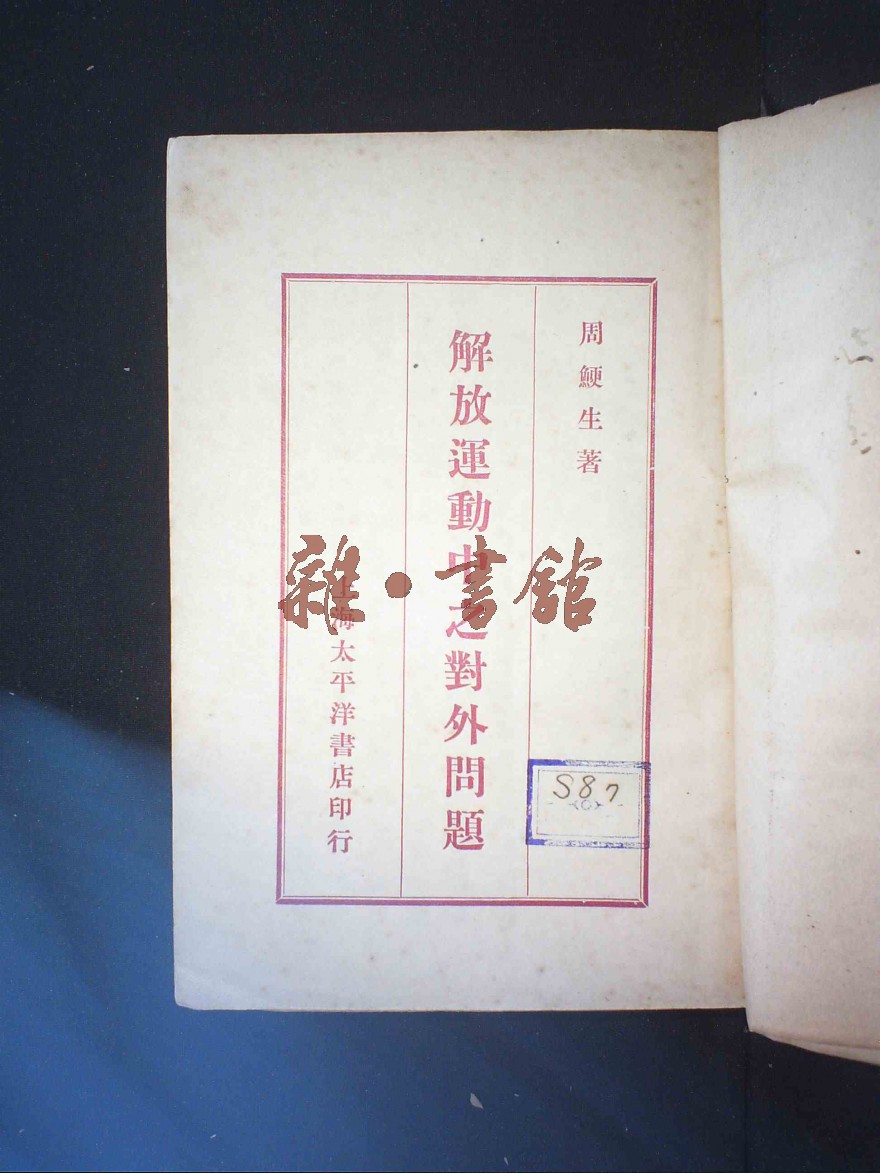 周鯁生著
解放運動中之對外問題
上海太平洋書店印行
雜·書館
S87